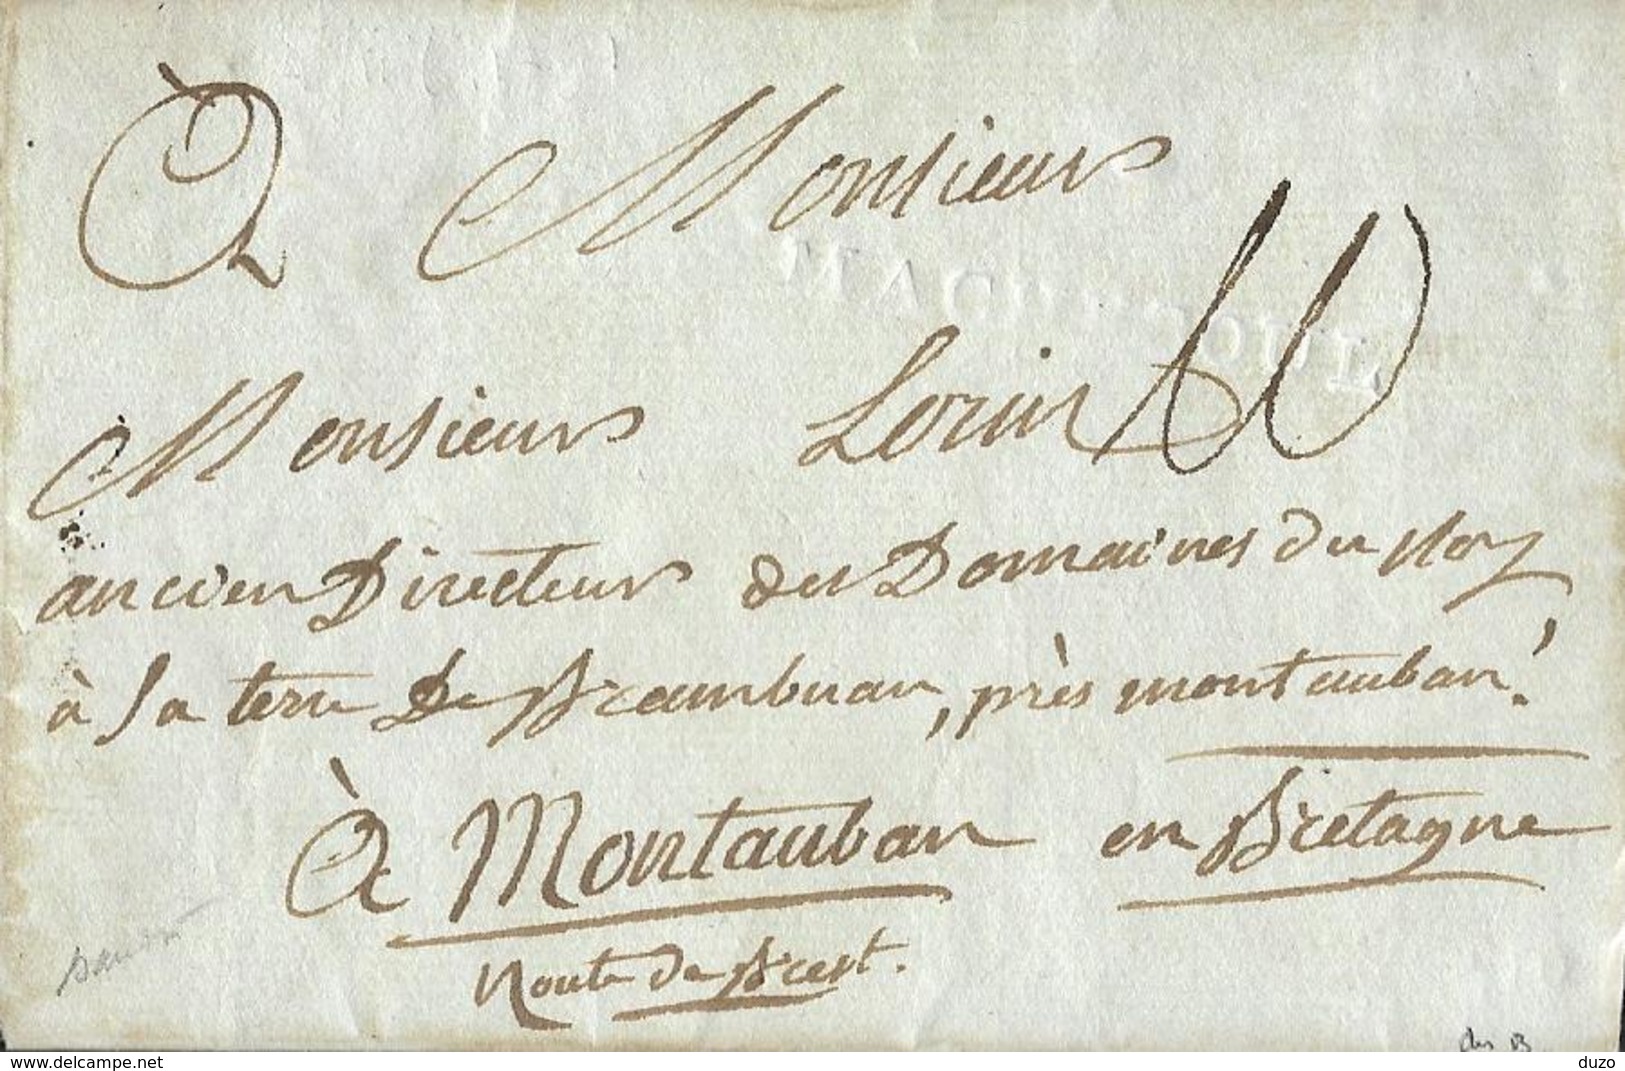 A Monsieur
Monsieur Lorin
ancien Directeur des Domaines du Roy
à la terre De Brambuan, près montauban.
À Montauban en Bretagne
Route de Brest.
delcampe.net
duzo